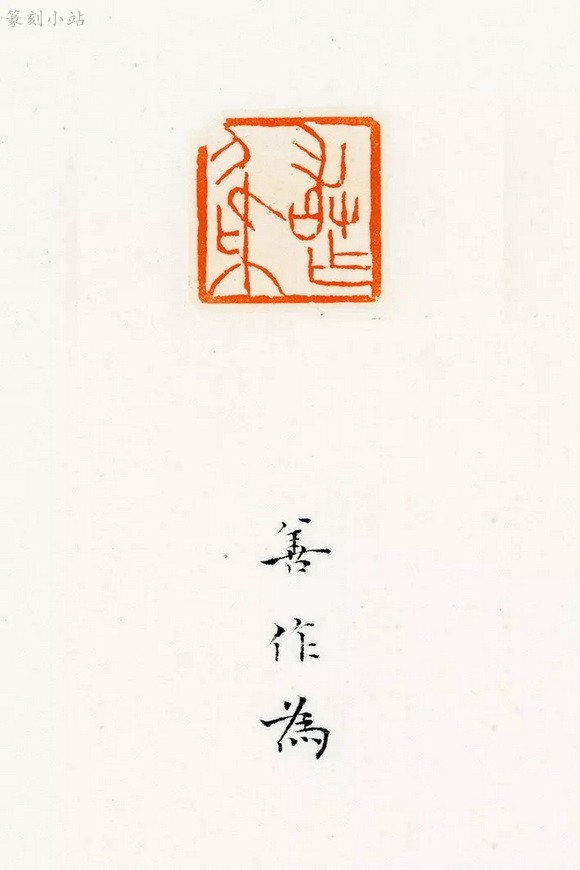 篆刻小站
善作為